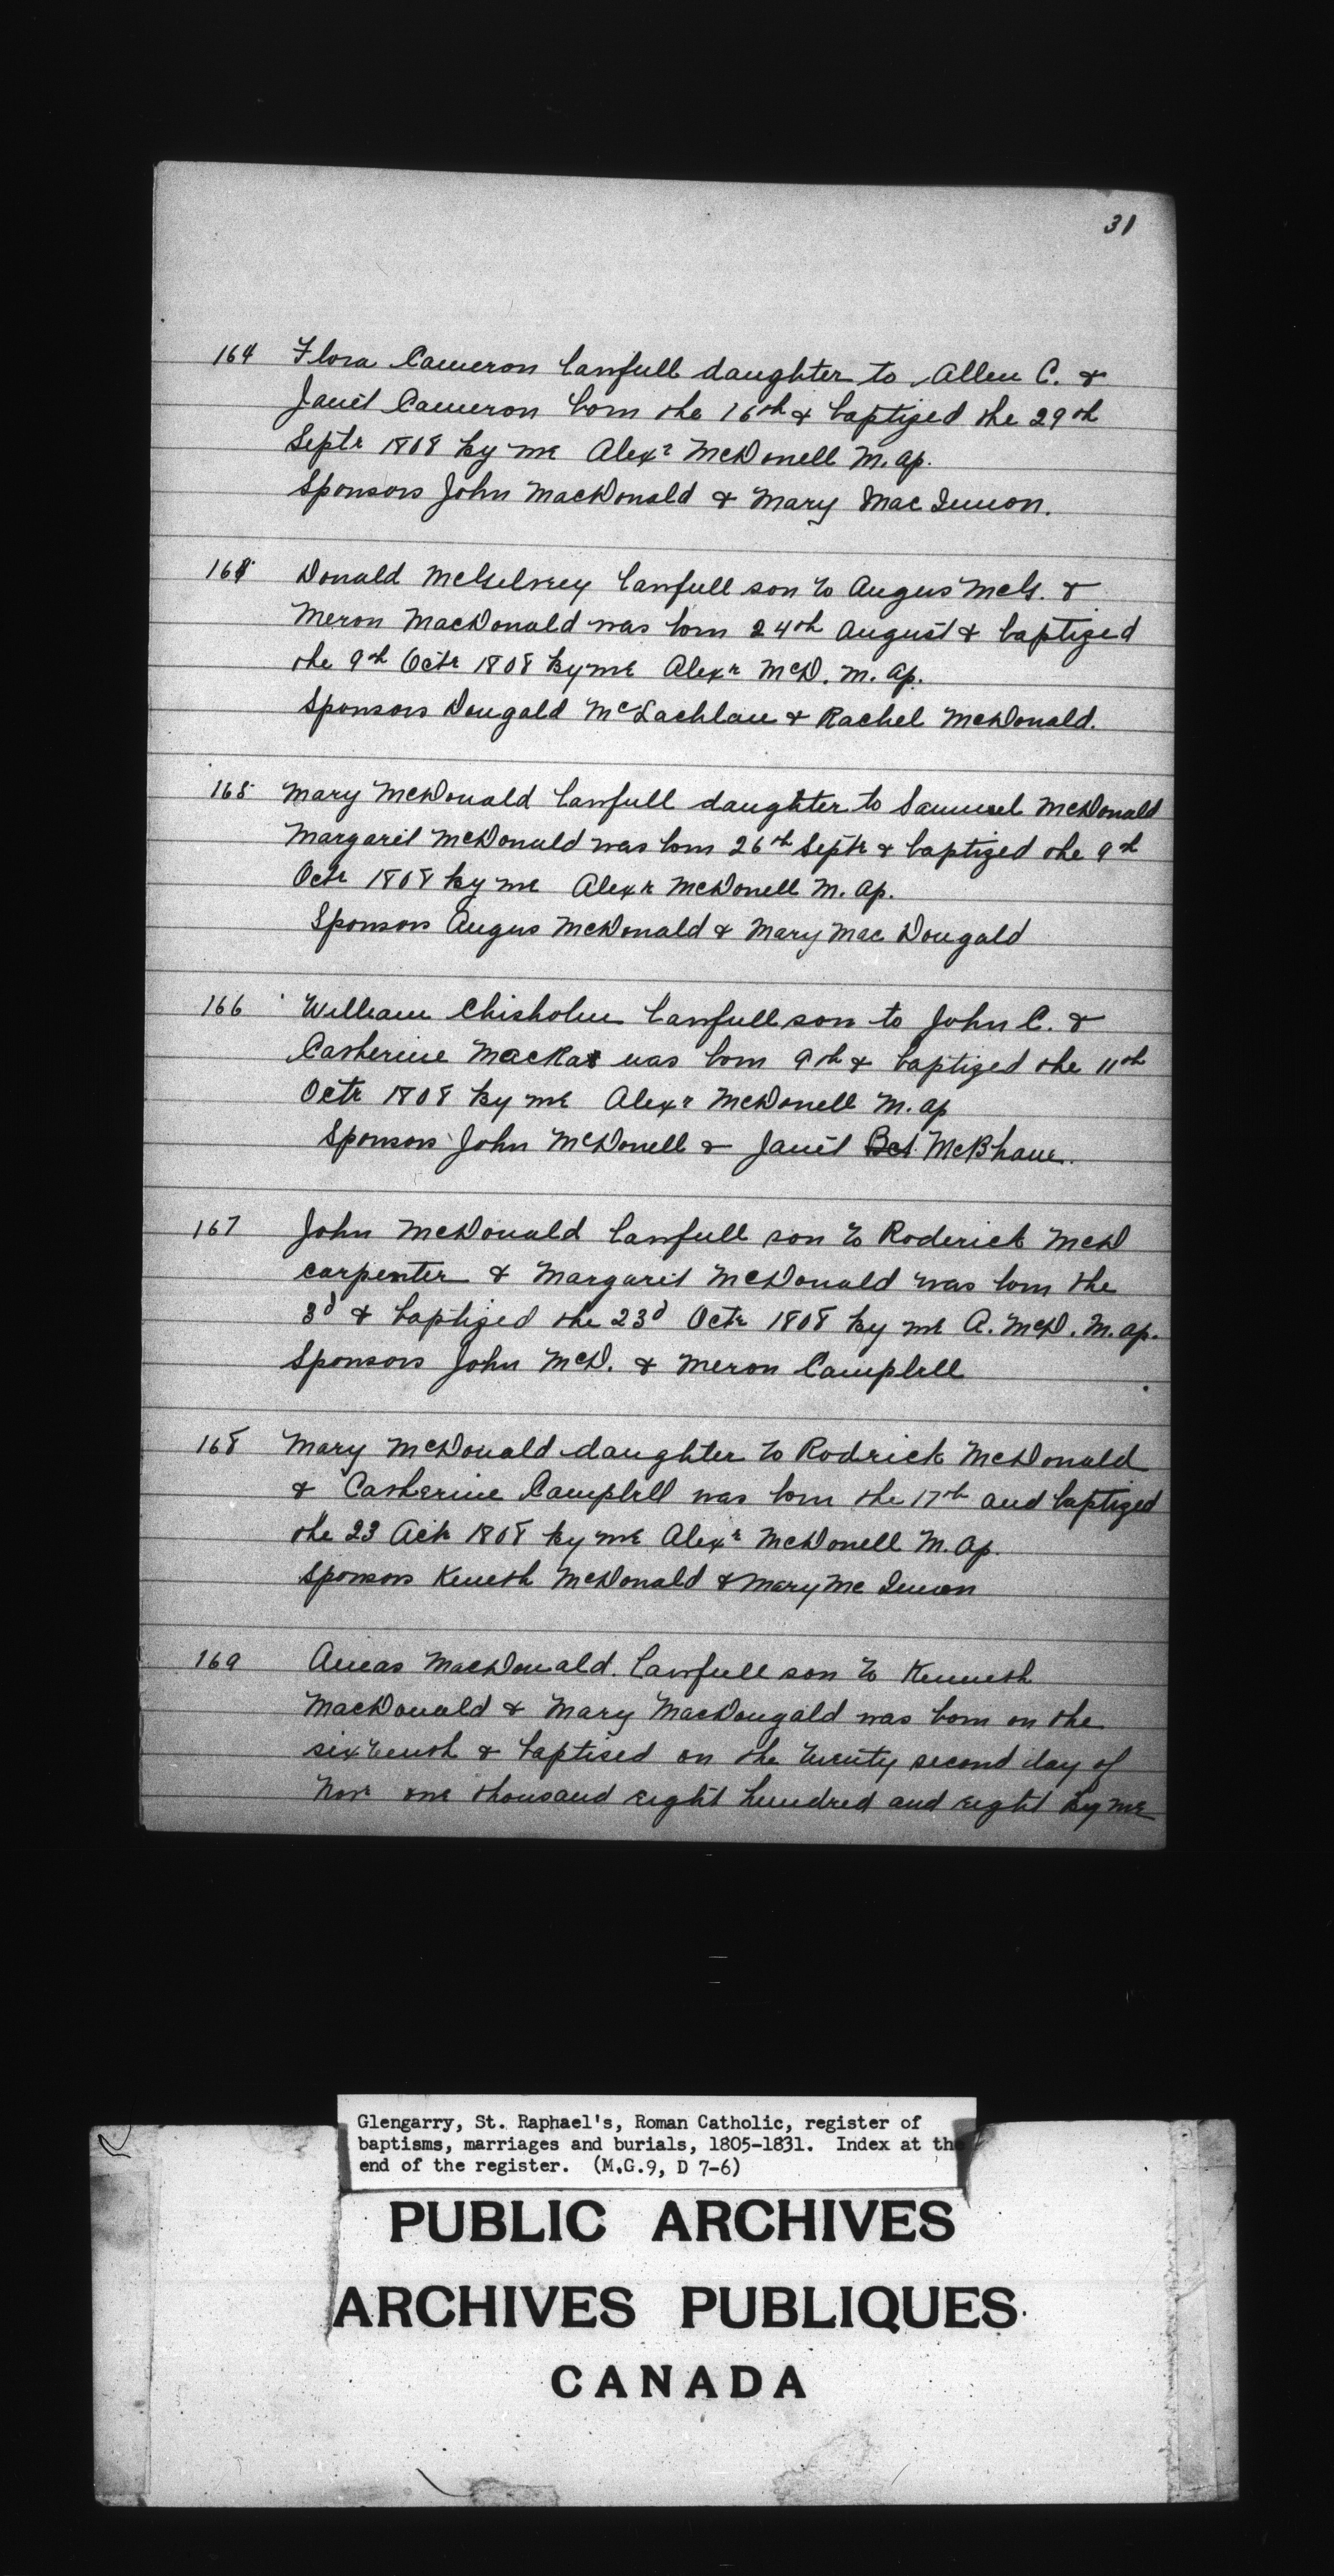 31
164 Flora Cameron lawfull daughter to Allen C. &
Janet Cameron born the 16th & baptized the 29th
Septr 1808 by me Alexr McDonell M. ap.
Sponsors John MacDonald & Mary Mac Innon.
Donald McGilvrey lawfull son to Angus McG. &
Meron MacDonald was born 24th August & baptized
the 9th Octr 1808 by me Alexr McD. M. ap.
Sponsors Dougald McLachlan & Rachel McDonald.
165 Mary McDonald lawfull daughter to Samuel McDonald
Margaret McDonald was born 26th Septr & baptized the 9th
Octr 1808 by me Alexr McDonell M. ap.
Sponsors Angus McDonald & Mary Mac Dougald
166 William Chisholm lawfull son to John C. &
Catherine was born 9th & baptized the 11th
Octr 1808 by me Alexr McDonell M. ap
Sponsors John McDonell & Janet
167 John McDonald lawfull son to Roderick McD
carpenter & Margaret McDonald was born the
3d & baptized the 23d Octr 1808 by me A. McD. M. ap.
Sponsors John McD. & Meron Campbell
168 Mary McDonald daughter to Rodrick McDonald
& Catherine Campbell was born the 17th and baptized
the 23 1808 by me Alexr McDonell M. ap.
Sponsors Keneth McDonald & Mary Mc Innon
169 Aneas MacDonald. lawfull son to Kenneth
MacDonald & Mary MacDougald was born on the
sixteenth & baptised on the twenty second day of
Novr one thousand eight hundred and eight by me
Glengarry, St. Raphael's, Roman Catholic, register of
baptisms, marriages and burials, 1805-1831. Index at the
end of the register. (M.G.9, D 7-6)
PUBLIC ARCHIVES
ARCHIVES PUBLIQUES
CANADA